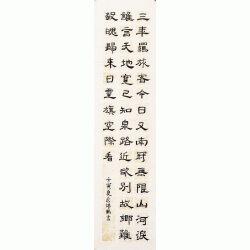 三年羈旅客今日又南冠無限山河淚
誰言天地寬已知泉路近欲別故鄉難
毅魄歸來日靈旗空際看
壬寅夏書